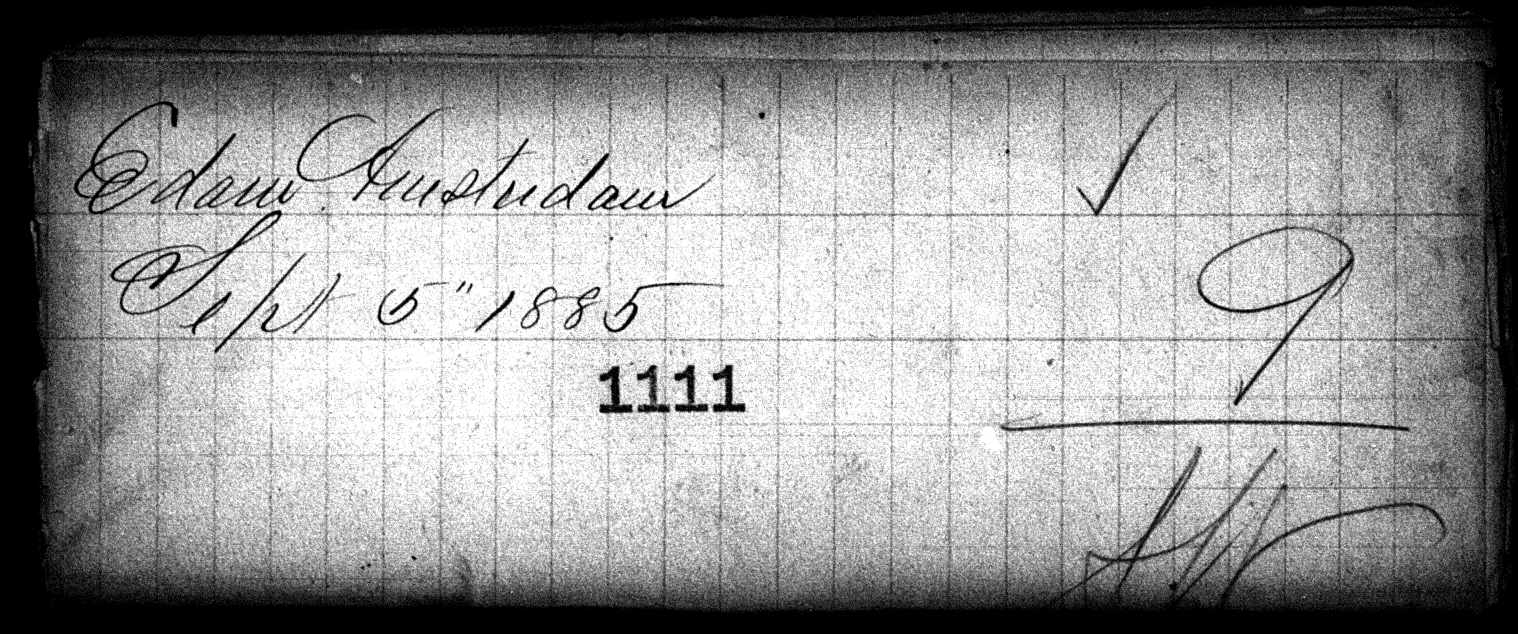 Edam Amsterdam
✓
Sept 5" 1885
9
1111